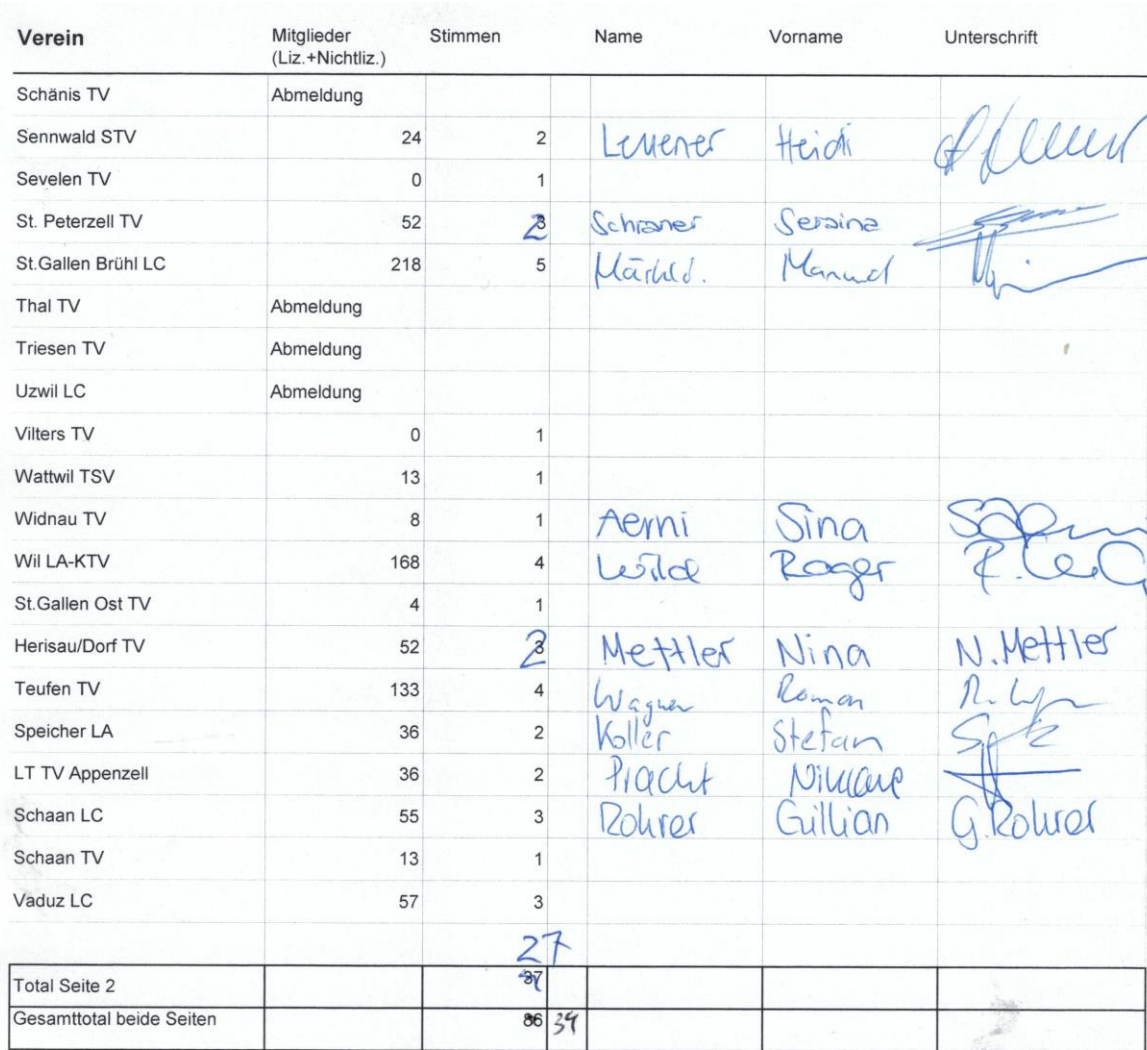 Verein Mitglieder (Liz.+Nichtliz.) Stimmen Name Vorname Unterschrift
Schänis TV Abmeldung
Sennwald STV 24 2 Leuener Heidi
Sevelen TV 0 1
St. Peterzell TV 52 2 Schraner Seraina
St.Gallen Brühl LC 218 5 Manuel
Thal TV Abmeldung
Triesen TV Abmeldung
Uzwil LC Abmeldung
Vilters TV 0 1
Wattwil TSV 13 1
Widnau TV 8 1 Aerni Sina
Wil LA-KTV 168 4 Wild Roger
St.Gallen Ost TV 4 1
Herisau/Dorf TV 52 2 Mettler Nina N.Mettler
Teufen TV 133 4 Wagner Roman
Speicher LA 36 2 Koller Stefan
LT TV Appenzell 36 2 Pracht
Schaan LC 55 3 Rohrer Gillian G.Rohrer
Schaan TV 13 1
Vaduz LC 57 3
27
Total Seite 2 37
Gesamttotal beide Seiten 86